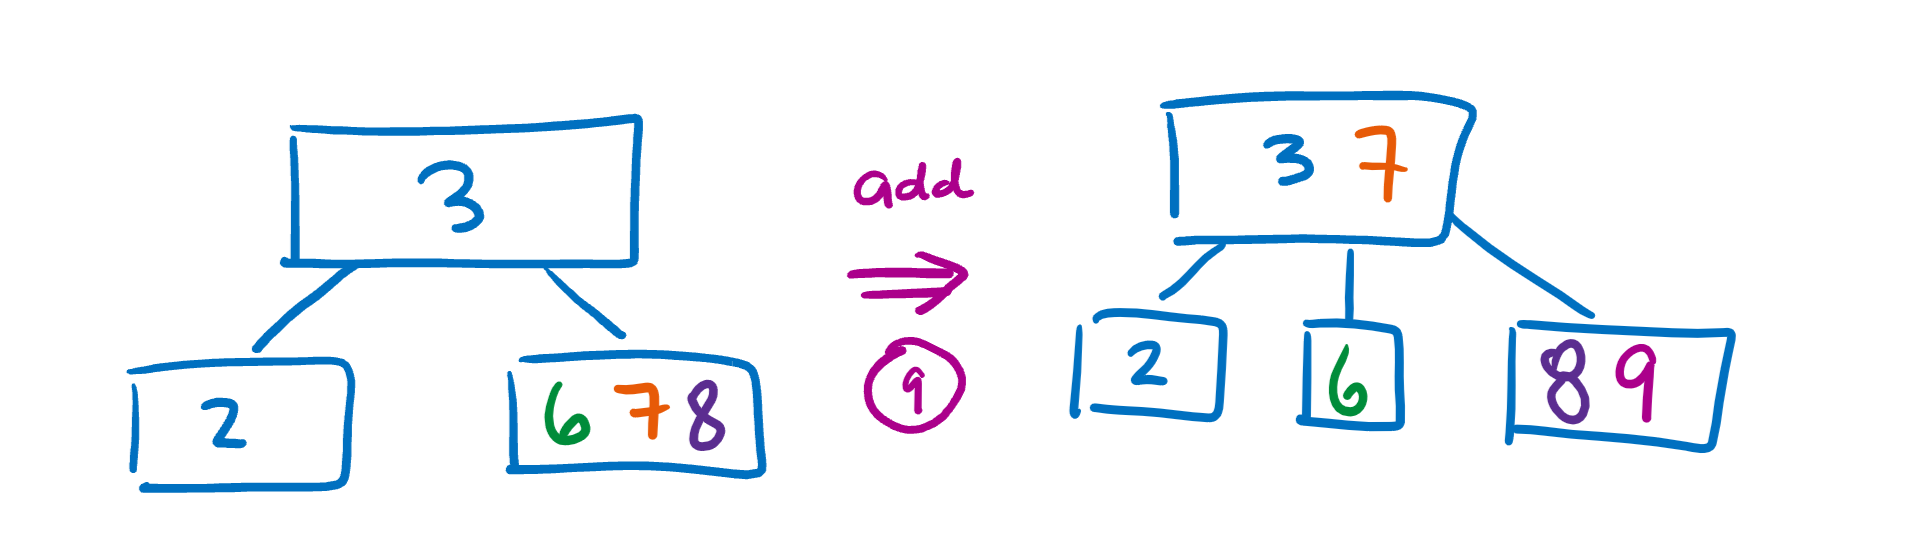 3
2
6 7 8
add
9
3 7
2
6
8 9